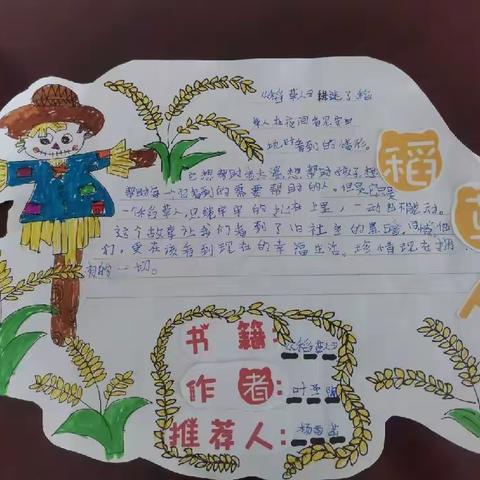 《稻草人》描述了稻
草人在夜间看见实田
地时看到的情形。
它想帮助老太婆，想帮助孩子，想
帮助每一个它看到的需要帮助的人，但是它是
一个稻草人，只能牢牢的扎在土里，一动也不能动。
这个故事让我们看到了旧社会的黑暗，同情他
们，更应该看到现在的幸福生活。珍惜现在拥
有的一切。
稻
草
人
书籍：《稻草人》
作者：叶圣陶
推荐人：杨